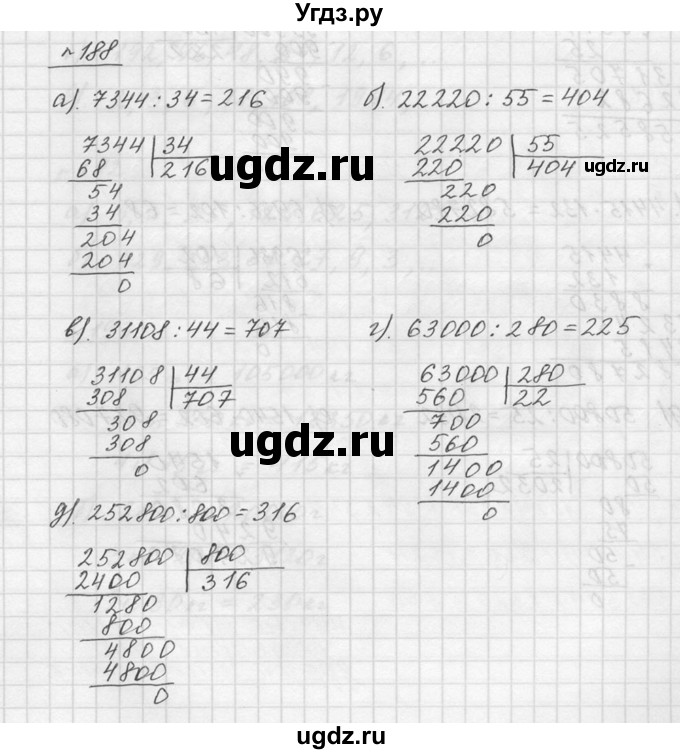 Угдз.ру
№188
а). 7344 : 34 = 216
7344 34
68 216
54
34
204
204
0
б). 22220 : 55 = 404
22220 55
220 404
220
220
0
в). 31108 : 44 = 707
31108 44
308 707
308
308
0
г). 63000 : 280 = 225
63000 280
560 22
700
560
1400
1400
0
д). 252800 : 800 = 316
252800 800
2400 316
1280
800
4800
4800
0
ugdz.ru
ugdz.ru
ugdz.ru
ugdz.ru
ugdz.ru